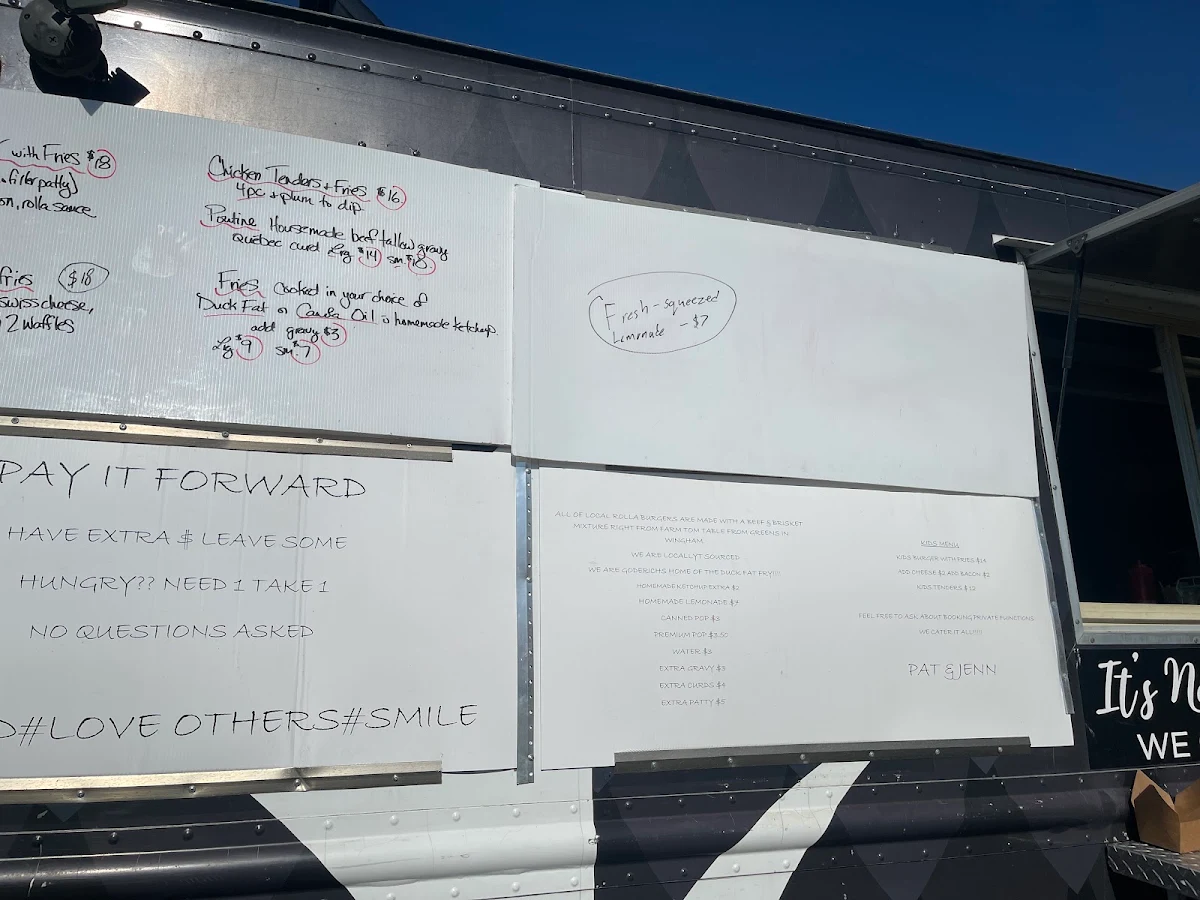 with Fries $18
filler patty]
on, rolla sauce
fries $18
swiss cheese,
2 Waffles
Chicken Tenders + Fries $16
4pc + plum to dip
Poutine Housemade beef tallow gravy
Quebec curd Lrg $14 sm $10.
Fries Cooked in your choice of
Duck Fat or Canola Oil homemade ketchup
add gravy $3
Lg $9 sm $7
Fresh-squeezed
Lemonade - $7
PAY IT FORWARD
HAVE EXTRA $ LEAVE SOME
HUNGRY?? NEED 1 TAKE 1
NO QUESTIONS ASKED
D#LOVE OTHERS#SMILE
ALL OF LOCAL ROLLA BURGERS ARE MADE WITH A BEEF & BRISKET
MIXTURE RIGHT FROM FARM TOM TABLE FROM GREENS IN
WINGHAM.
WE ARE LOCALLYT SOURCED
WE ARE GODERICHS HOME OF THE DUCK FAT FRY!!!!
HOMEMADE KETCHUP EXTRA $2
HOMEMADE LEMONADE $4
CANNED POP $3
PREMIUM POP $3.50
WATER $3
EXTRA GRAVY $3
EXTRA CURDS $4
EXTRA PATTY $5
KIDS MENU
KIDS BURGER WITH FRIES $14
ADD CHEESE $2 ADD BACON $2
KIDS TENDERS $12
FEEL FREE TO ASK ABOUT BOOKING PRIVATE FUNCTIONS
WE CATER IT ALL!!!!!
PAT & JENN
It's N
WE